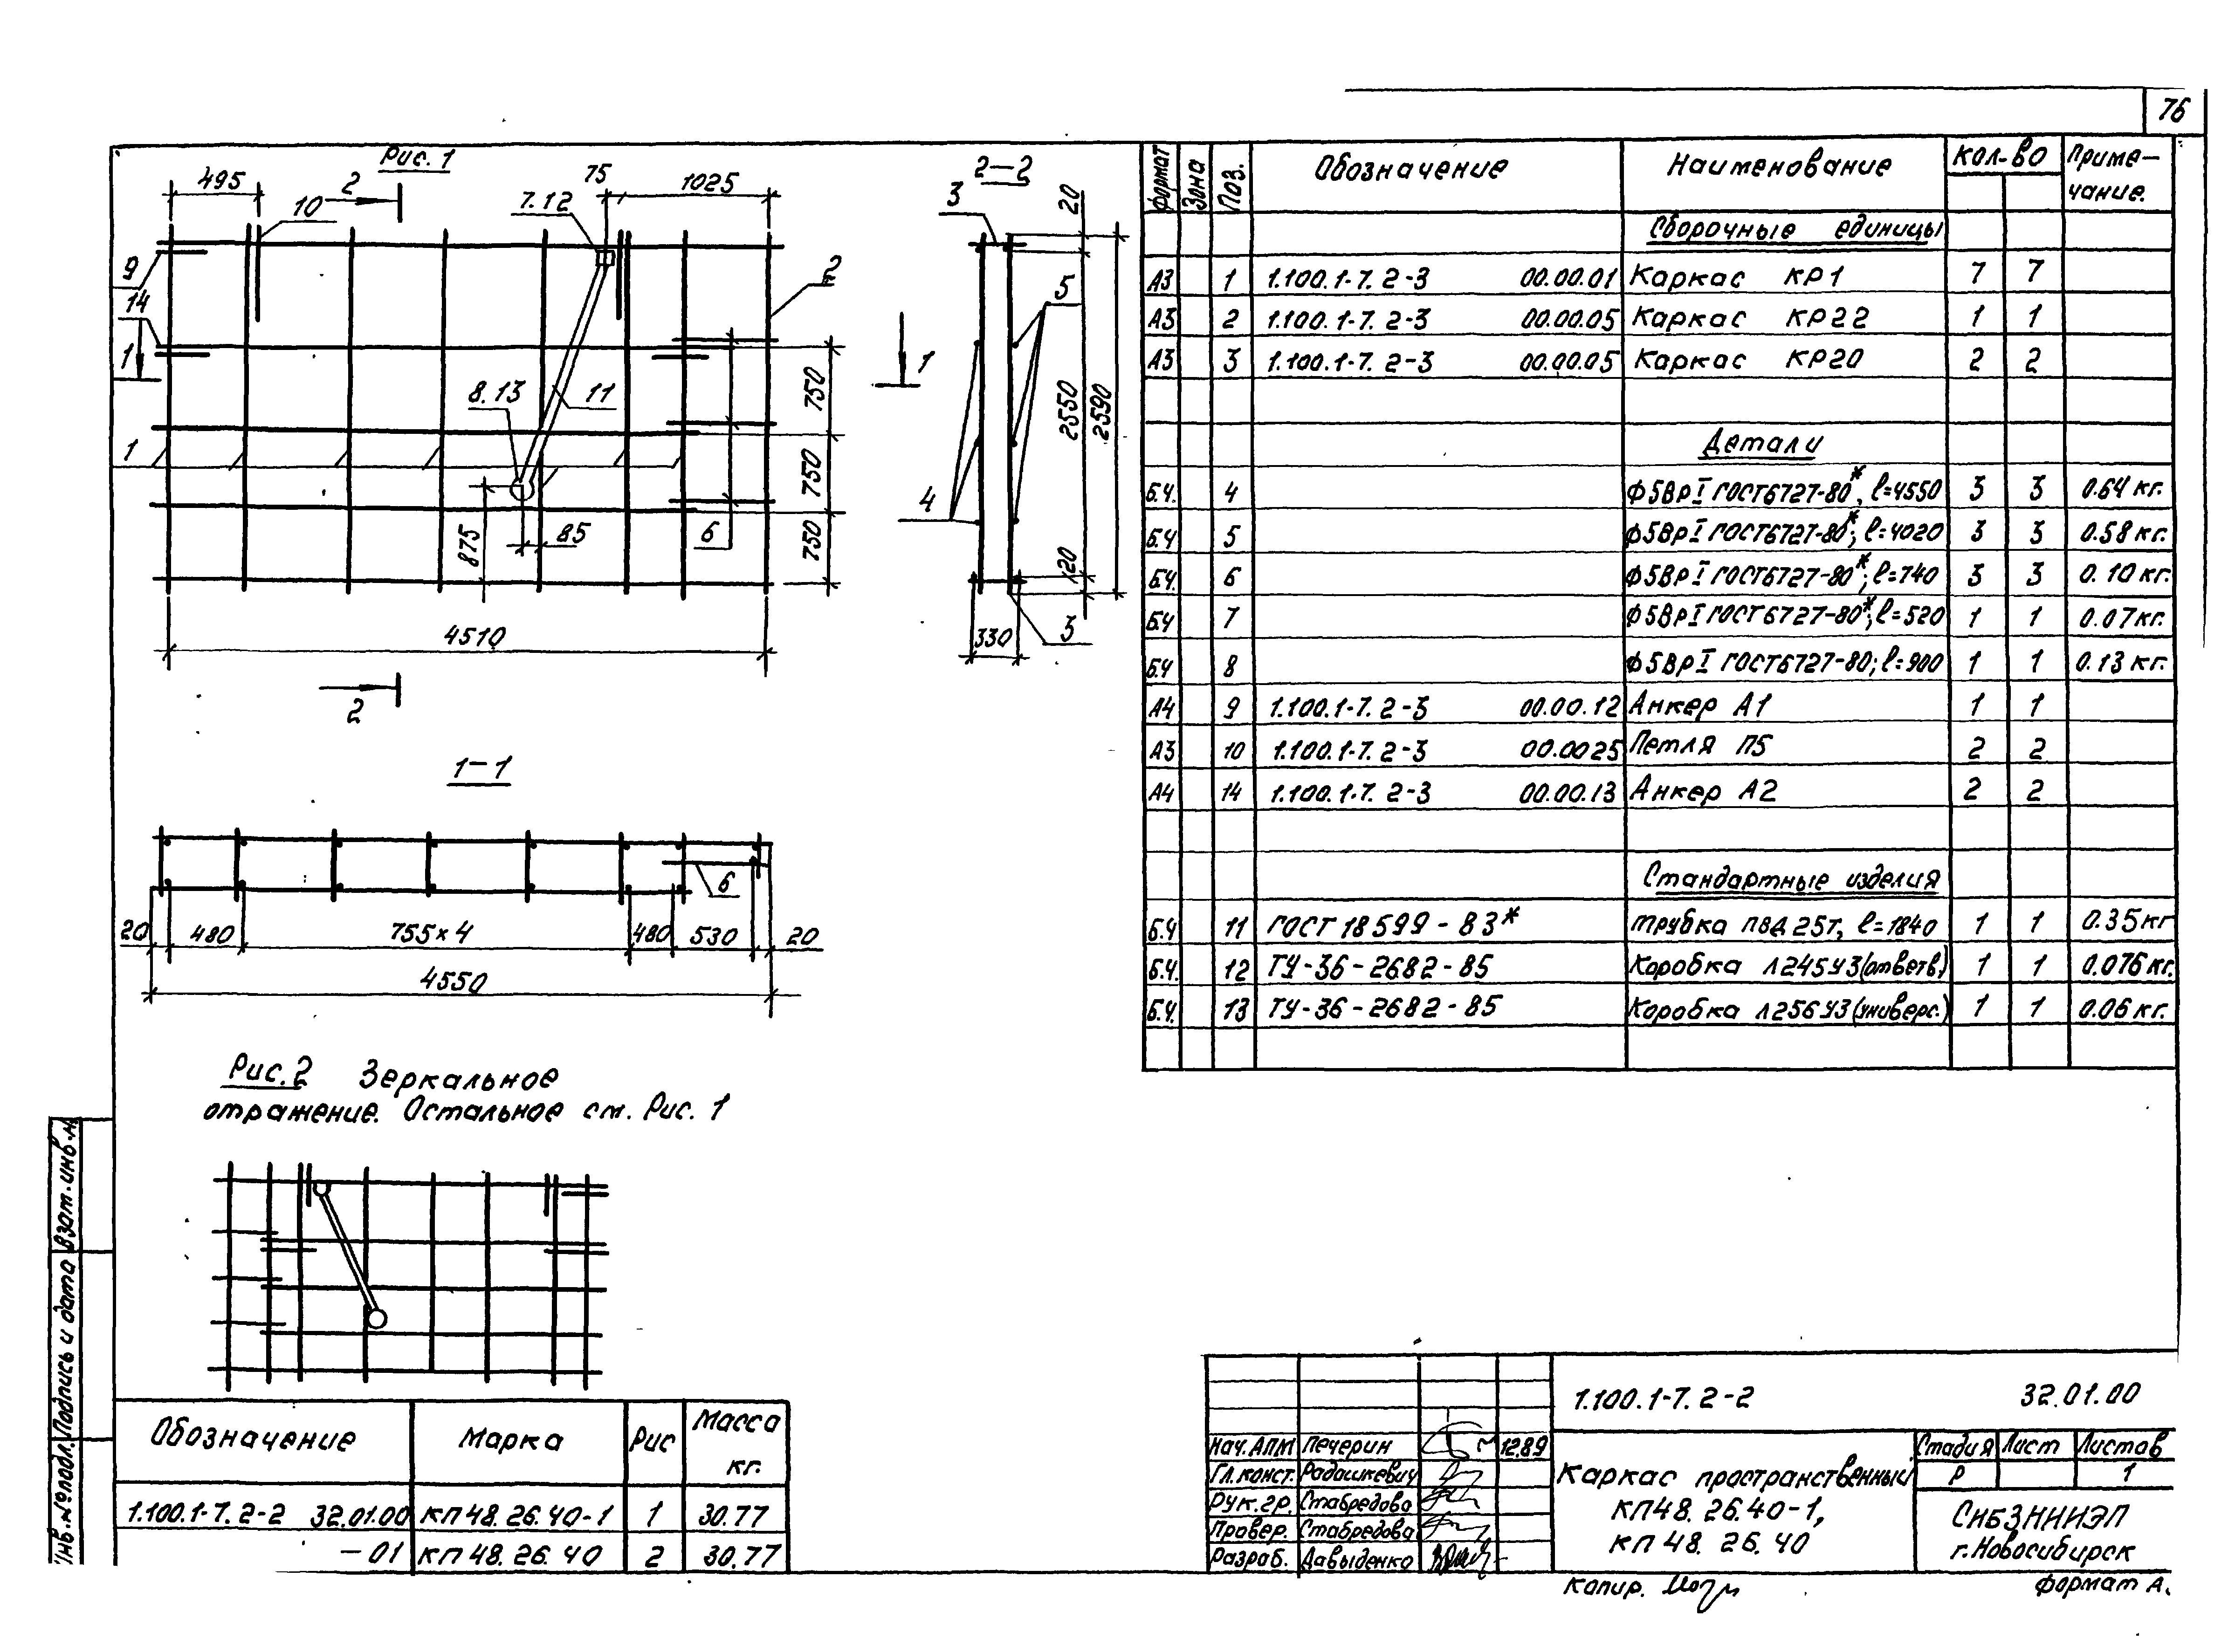 76
Рис. 1
495
2
10
75
1025
7.12
9
14
2
1
8.13
11
750
1
750
6
875
85
750
4510
2
2-2
3
20
5
1
2550
2590
4
20
330
3
1-1
6
20
480
755×4
480
530
20
4550
Рис. 2 Зеркальное
отражение. Остальное см. Рис. 1
Формат Зона Поз. Обозначение Наименование Кол-во Приме-
чание.
Сборочные единицы
А3 1 1.100.1-7.2-3 00.00.01 Каркас КР1 7 7
А3 2 1.100.1-7.2-3 00.00.05 Каркас КР22 1 1
А3 3 1.100.1-7.2-3 00.00.05 Каркас КР20 2 2
Детали
Б.Ч. 4 Ф5ВрI ГОСТ6727-80*, ℓ=4550 3 3 0.64 кг.
Б.Ч 5 Ф5ВрI ГОСТ6727-80*; ℓ=4020 3 3 0.58 кг.
Б.Ч. 6 Ф5ВрI ГОСТ6727-80*; ℓ=740 3 3 0.10 кг.
Б.Ч 7 Ф5ВрI ГОСТ6727-80*; ℓ=520 1 1 0.07 кг.
Б.Ч 8 Ф5ВрI ГОСТ6727-80; ℓ=900 1 1 0.13 кг.
А4 9 1.100.1-7.2-3 00.00.12 Анкер А1 1 1
А3 10 1.100.1-7.2-3 00.0025 Петля П5 2 2
А4 14 1.100.1-7.2-3 00.00.13 Анкер А2 2 2
Стандартные изделия
Б.Ч 11 ГОСТ 18599-83* Трубка ПВД 25Т, ℓ=1840 1 1 0.35 кг
Б.Ч. 12 ТУ-36-2682-85 Коробка Л245У3 (ответв.) 1 1 0.076 кг.
Б.Ч. 13 ТУ-36-2682-85 Коробка Л256У3 (универс.) 1 1 0.06 кг.
Обозначение Марка Рис Масса
кг.
1.100.1-7.2-2 32.01.00 КП 48.26.40-1 1 30.77
-01 КП 48.26.40 2 30.77
Инв.№подл. Подпись и дата Взам.инв.№
1.100.1-7.2-2 32.01.00
Нач.АПМ Печерин 12.89
Гл.конст. Радашкевич
Рук.гр. Стабредова
Провер. Стабредова
Разраб. Давыденко
Каркас пространственный
КП48.26.40-1,
КП 48.26.40
Стадия Лист Листов
Р 1
СибЗНИИЭП
г.Новосибирск
Копир.
Формат А.